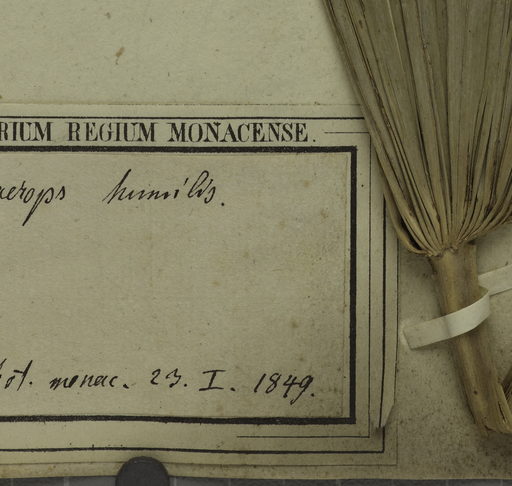 RIUM REGIUM MONACENSE.
aerops humilis.
bot. monac. 23. I. 1849.